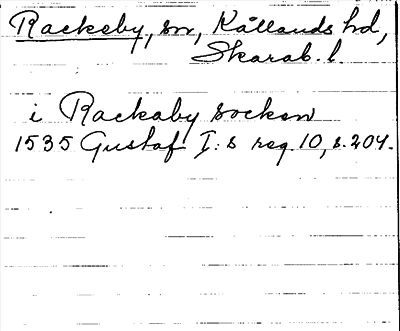 Rackeby, sn, Kållands hd,
Skarab. l.
i Rackaby socken
1535 Gustaf I:s reg. 10, s. 204.